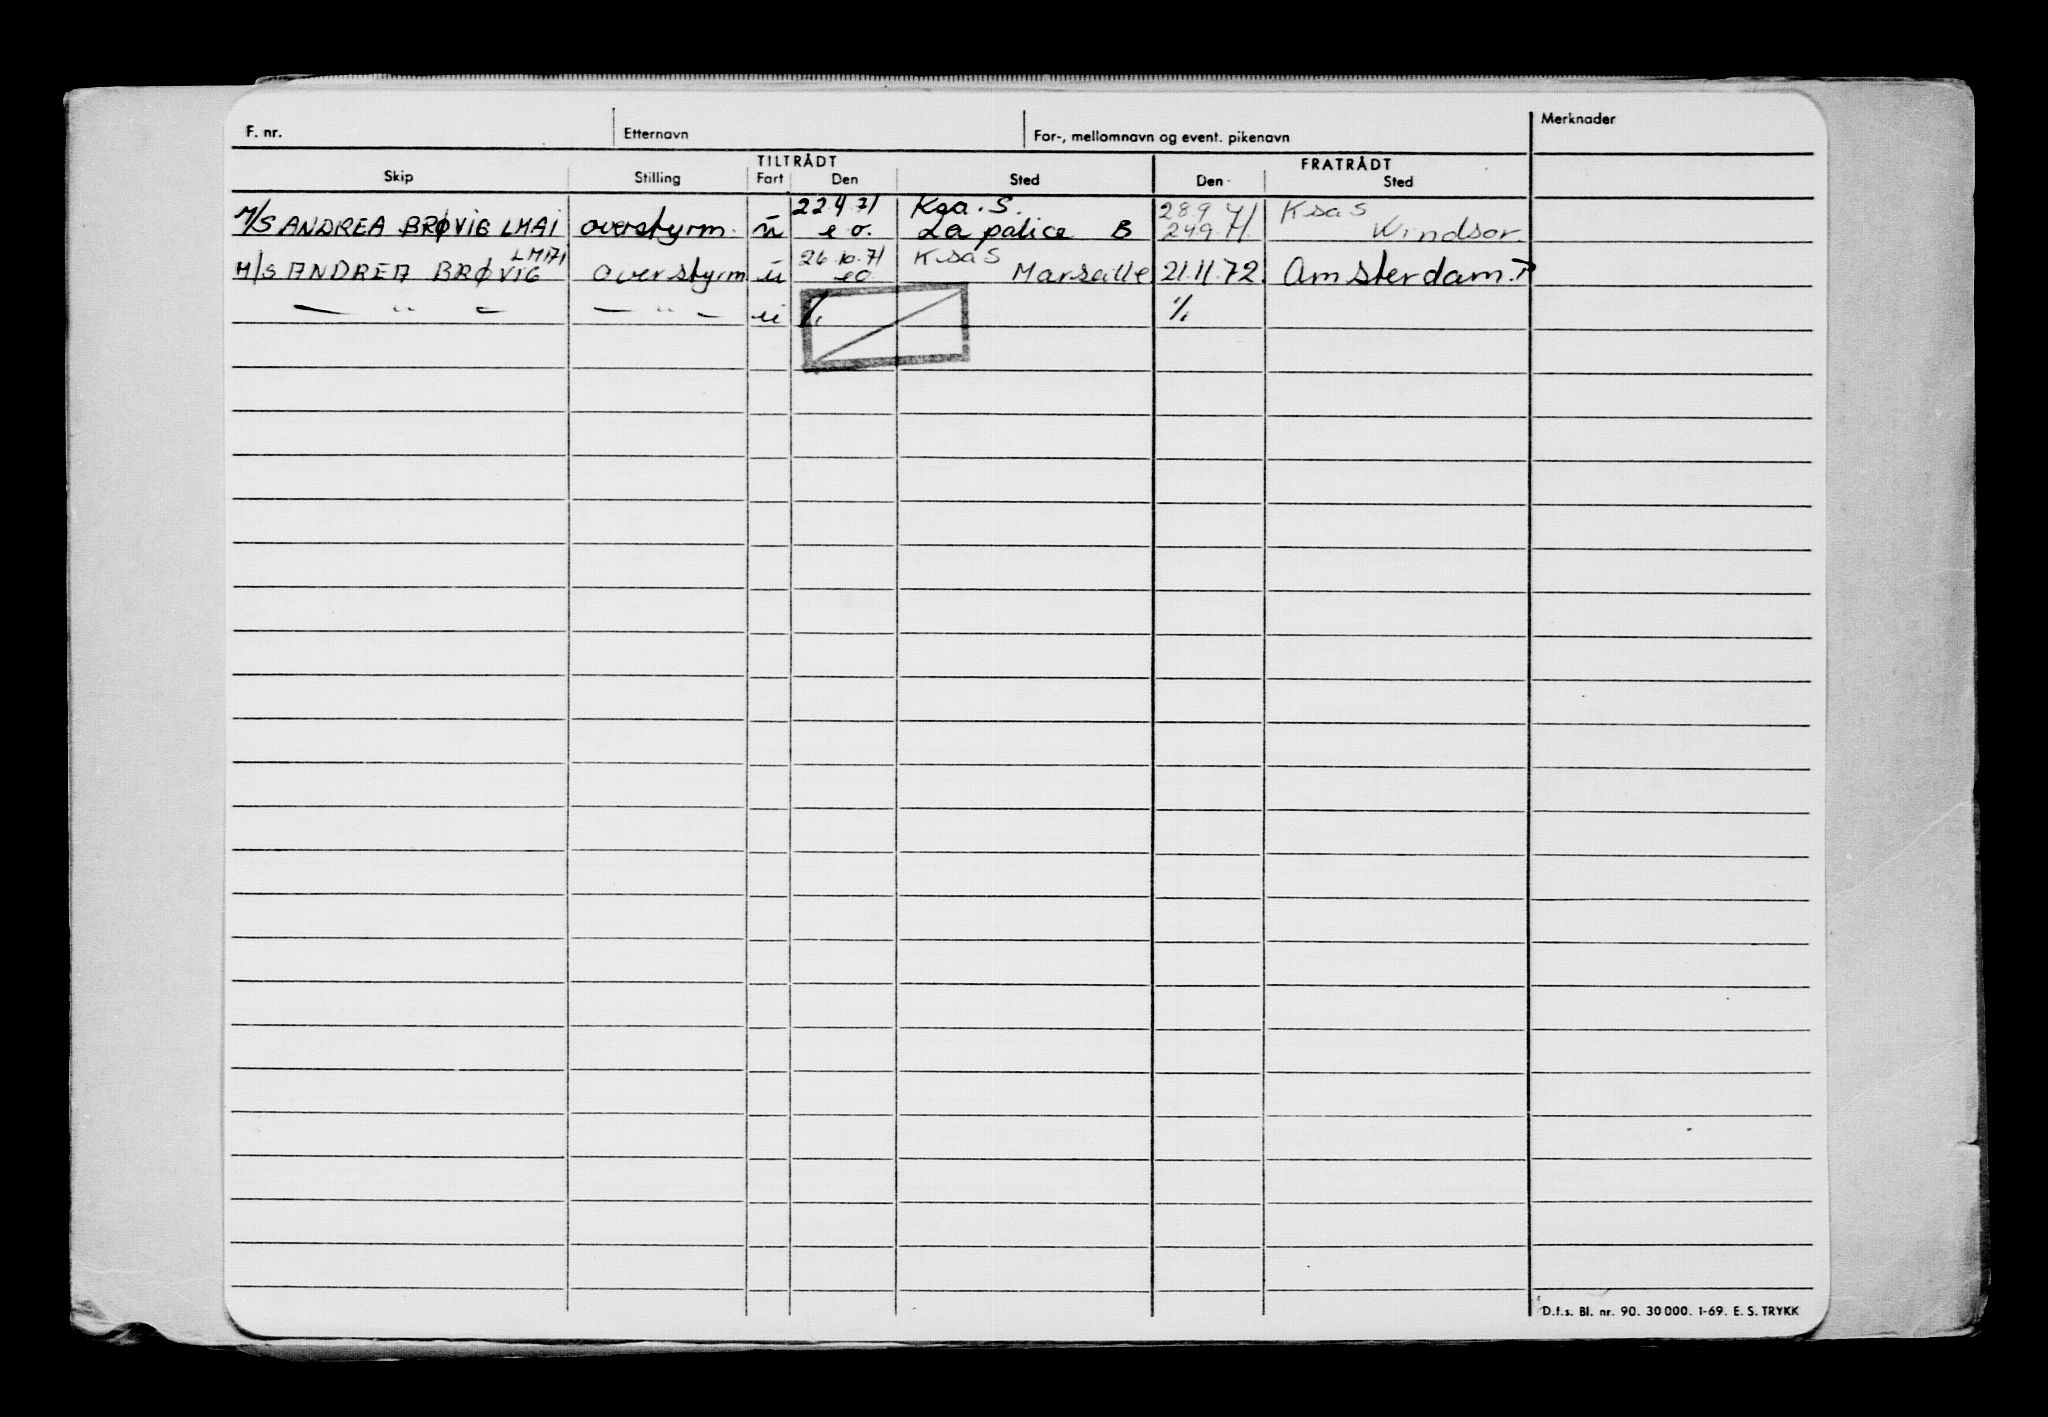 F. nr. Etternavn For-, mellomnavn og event. pikenavn Merknader
TILTRÅDT FRATRÅDT
Skip Stilling Fart Den Sted Den Sted
22.4.71 Ksa. S. 28.9.71 Ksa S
M/S ANDREA BRØVIG LMAI overstyrm. u e o. La palice B 24.9.71. Windsor.
LMAI 26.10.71 Ksa S
M/S ANDREA BRØVIG overstyrm u eo Marseille 21.11.72. Amsterdam.
— " — — " — u ⁒ ⁒
D.f.s. Bl. nr. 90. 30 000. 1-69. E. S. TRYKK